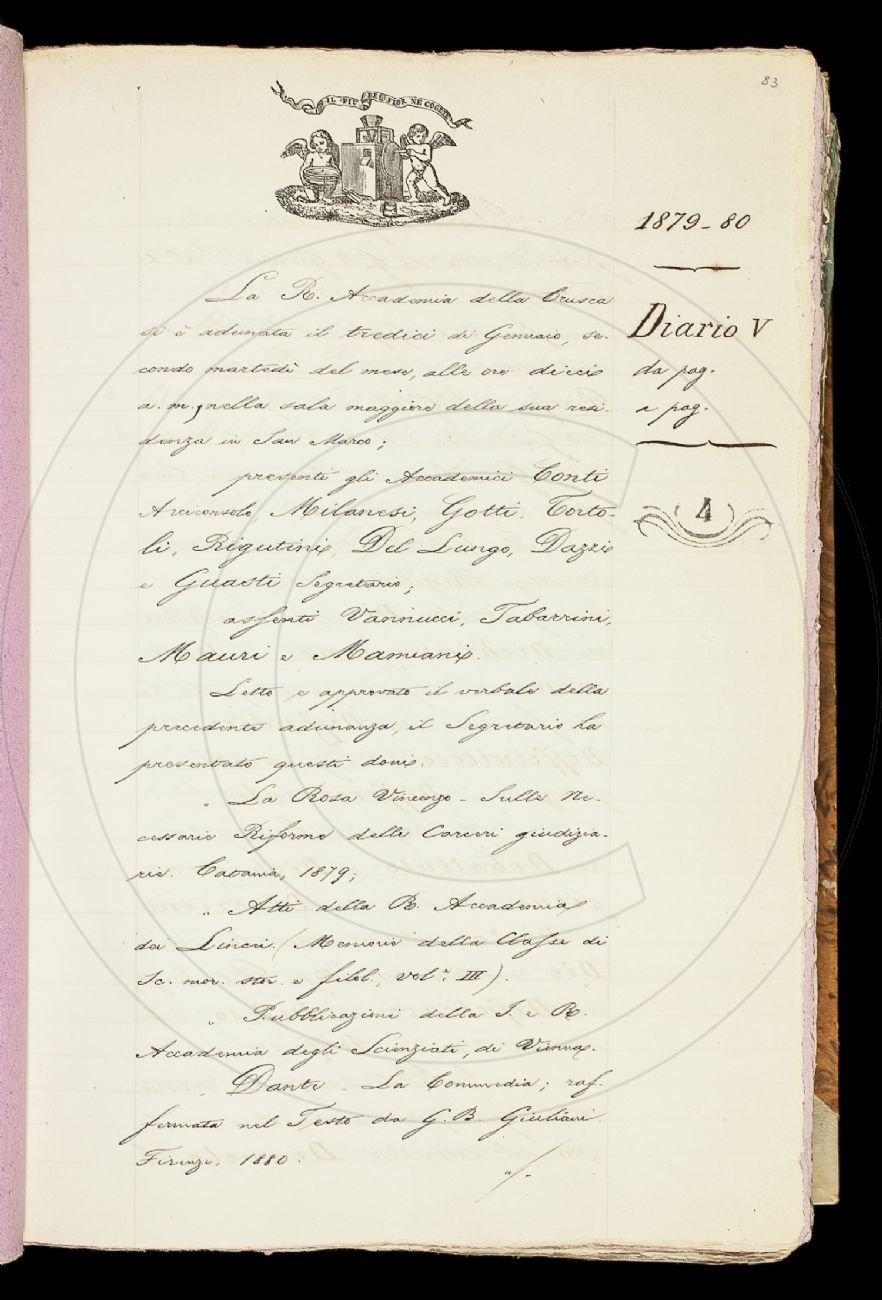 83
IL PIÙ BEL FIOR NE COGLIE
1879-80
Diario V
da pag.
a pag.
4
La R. Accademia della Crusca
si è adunata il tredici di Gennaio, se-
condo martedì del mese, alle ore dieci
a. m., nella sala maggiore della sua resi-
denza in San Marco;
presenti gli Accademici Conti
Arciconsolo, Milanesi, Gotti, Torto-
li, Rigutini, Del Lungo, Dazzi
e Guasti Segretario;
assenti Vannucci, Tabarrini,
Mauri e Mamiani.
Letto e approvato il verbale della
precedente adunanza, il Segretario ha
presentato questi doni.
" La Rosa Vincenzo - Sulle Ne-
cessarie Riforme delle Carceri giudizia-
rie. Catania, 1879;
" Atti della R. Accademia
dei Lincei. (Memorie della Classe di
Sc. mor. stor. e filol., vol.e III).
" Pubblicazioni della I. e R.
Accademia degli Scienziati, di Vienna.
" Dante - La Commedia; raf-
fermata nel Testo da G. B. Giuliani.
Firenze, 1880.
./.